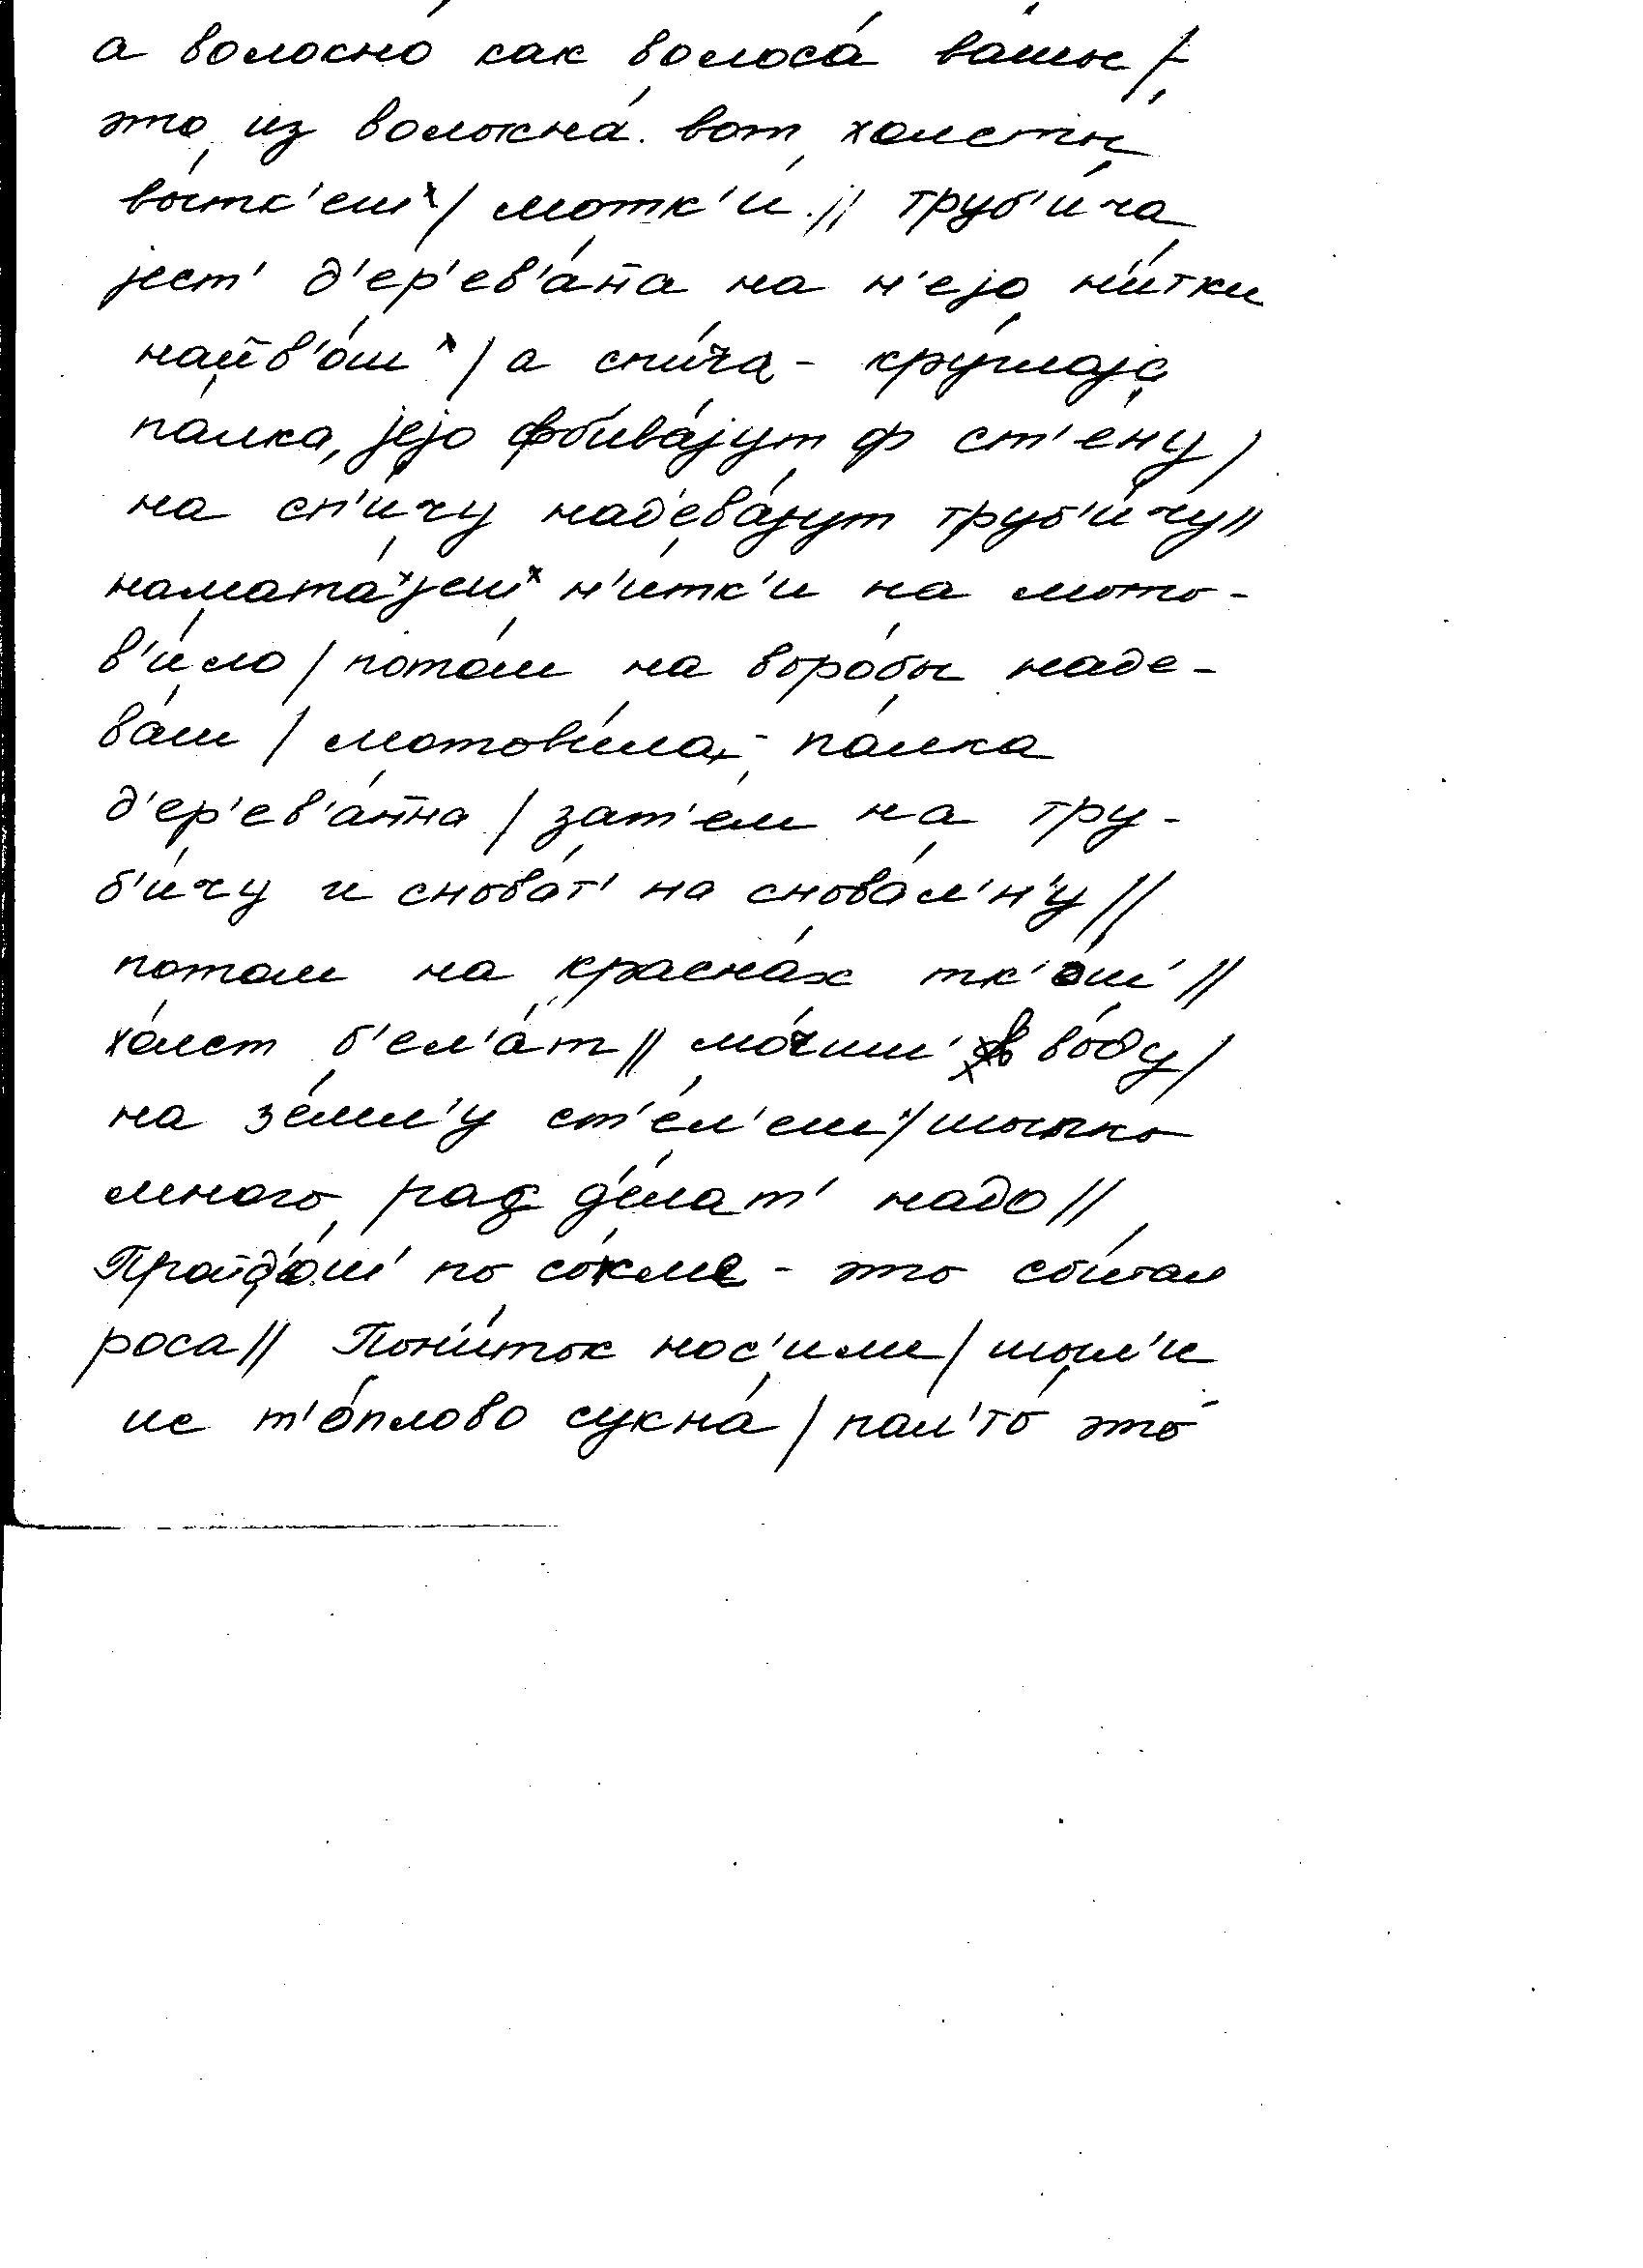 а волосно́ как волоса́ ва́шы /
э́то из волокна́. вот холсты́
вы́тк'еш / мотк'и́ // труб'и́ча
јест' д'ер'ев'а́на на н'ејо́ н'и́тки
нав'јо́ш / а спи́ча - кру́глаја
па́лка, јејо́ фбива́јут ф ст'е́ну /
на сп'и́чу над'ева́јут труб'и́чу //
намата́јеш н'и́тк'и на мото-
в'и́ло / пото́м на воро́бы наде-
ва́ш / мотови́ла - па́лка
д'ер'ев'а́нна / зат'е́м на тру-
б'и́чу и снова́т' на снова́л'н'у //
пото́м на красна́х тк'о́ш //
хо́лст б'ел'а́т // мо́чиш в во́ду /
на зе́мл'у ст'е́л'еш / шы́пко
мно́го рад д'е́лат' на́до //
Пройд'о́ш по со́кме - это сби́там
роса // Пони́ток нос'или / шы́л'и
ис т'о́плово сукна́ / пал'то́ э́то